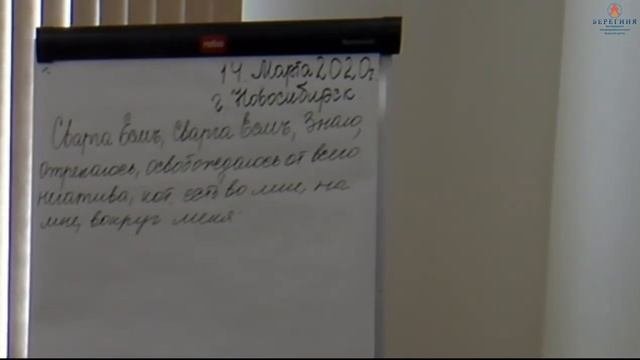 БЕРЕГИНЯ
14 Марта 2020г.
г. Новосибирск
Сварга Ёсмь, Сварга Ёсмь, Знаю,
отрекаюсь, освобождаюсь от всего
негатива, кот. есть во мне, на
мне, вокруг меня